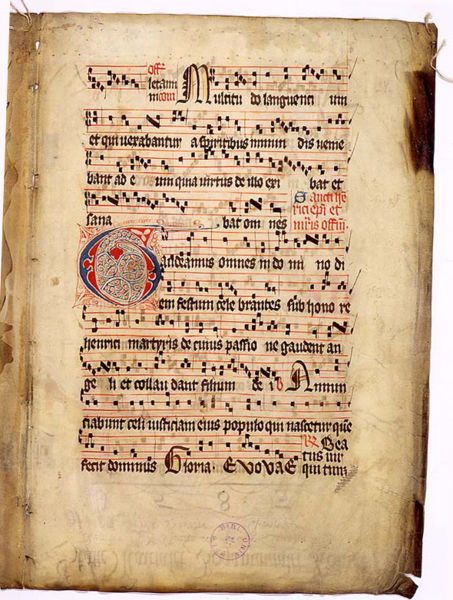 off̄
letam
ni com
Multitu do languenti um
et qui vexabantur a spiritibus inmun dis venie
bant ad e um quia virtus de illo exi bat et
Sancti he
rici epi et
mris offm
sana bat om nes
Gaudeamus omnes in do mi no di
em festum cele brantes sub hono re
henrici martyris de cuius passio ne gaudent an
ge li et collau dant filium de i Annun
ciabunt celi iusticiam eius populo qui nascetur que
fecit dominus Gloria EVOVAE
Bea
tus vir
qui tim